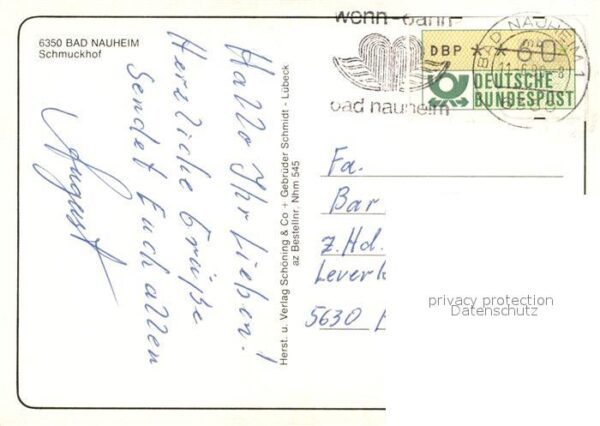 6350 BAD NAUHEIM
Schmuckhof
Hallo Ihr Lieben!
Herzliche Grüße
Sendet Euch allen
August
Herst. u. Verlag Schöning & Co + Gebrüder Schmidt - Lübeck
az Bestellnr. Nhm 545
wenn-dann
bad nauheim
BAD NAUHEIM 1
DBP ** 60
DEUTSCHE
BUNDESPOST
Fa.
Bar
z.Hd.
Leverk
5630
privacy protection
Datenschutz